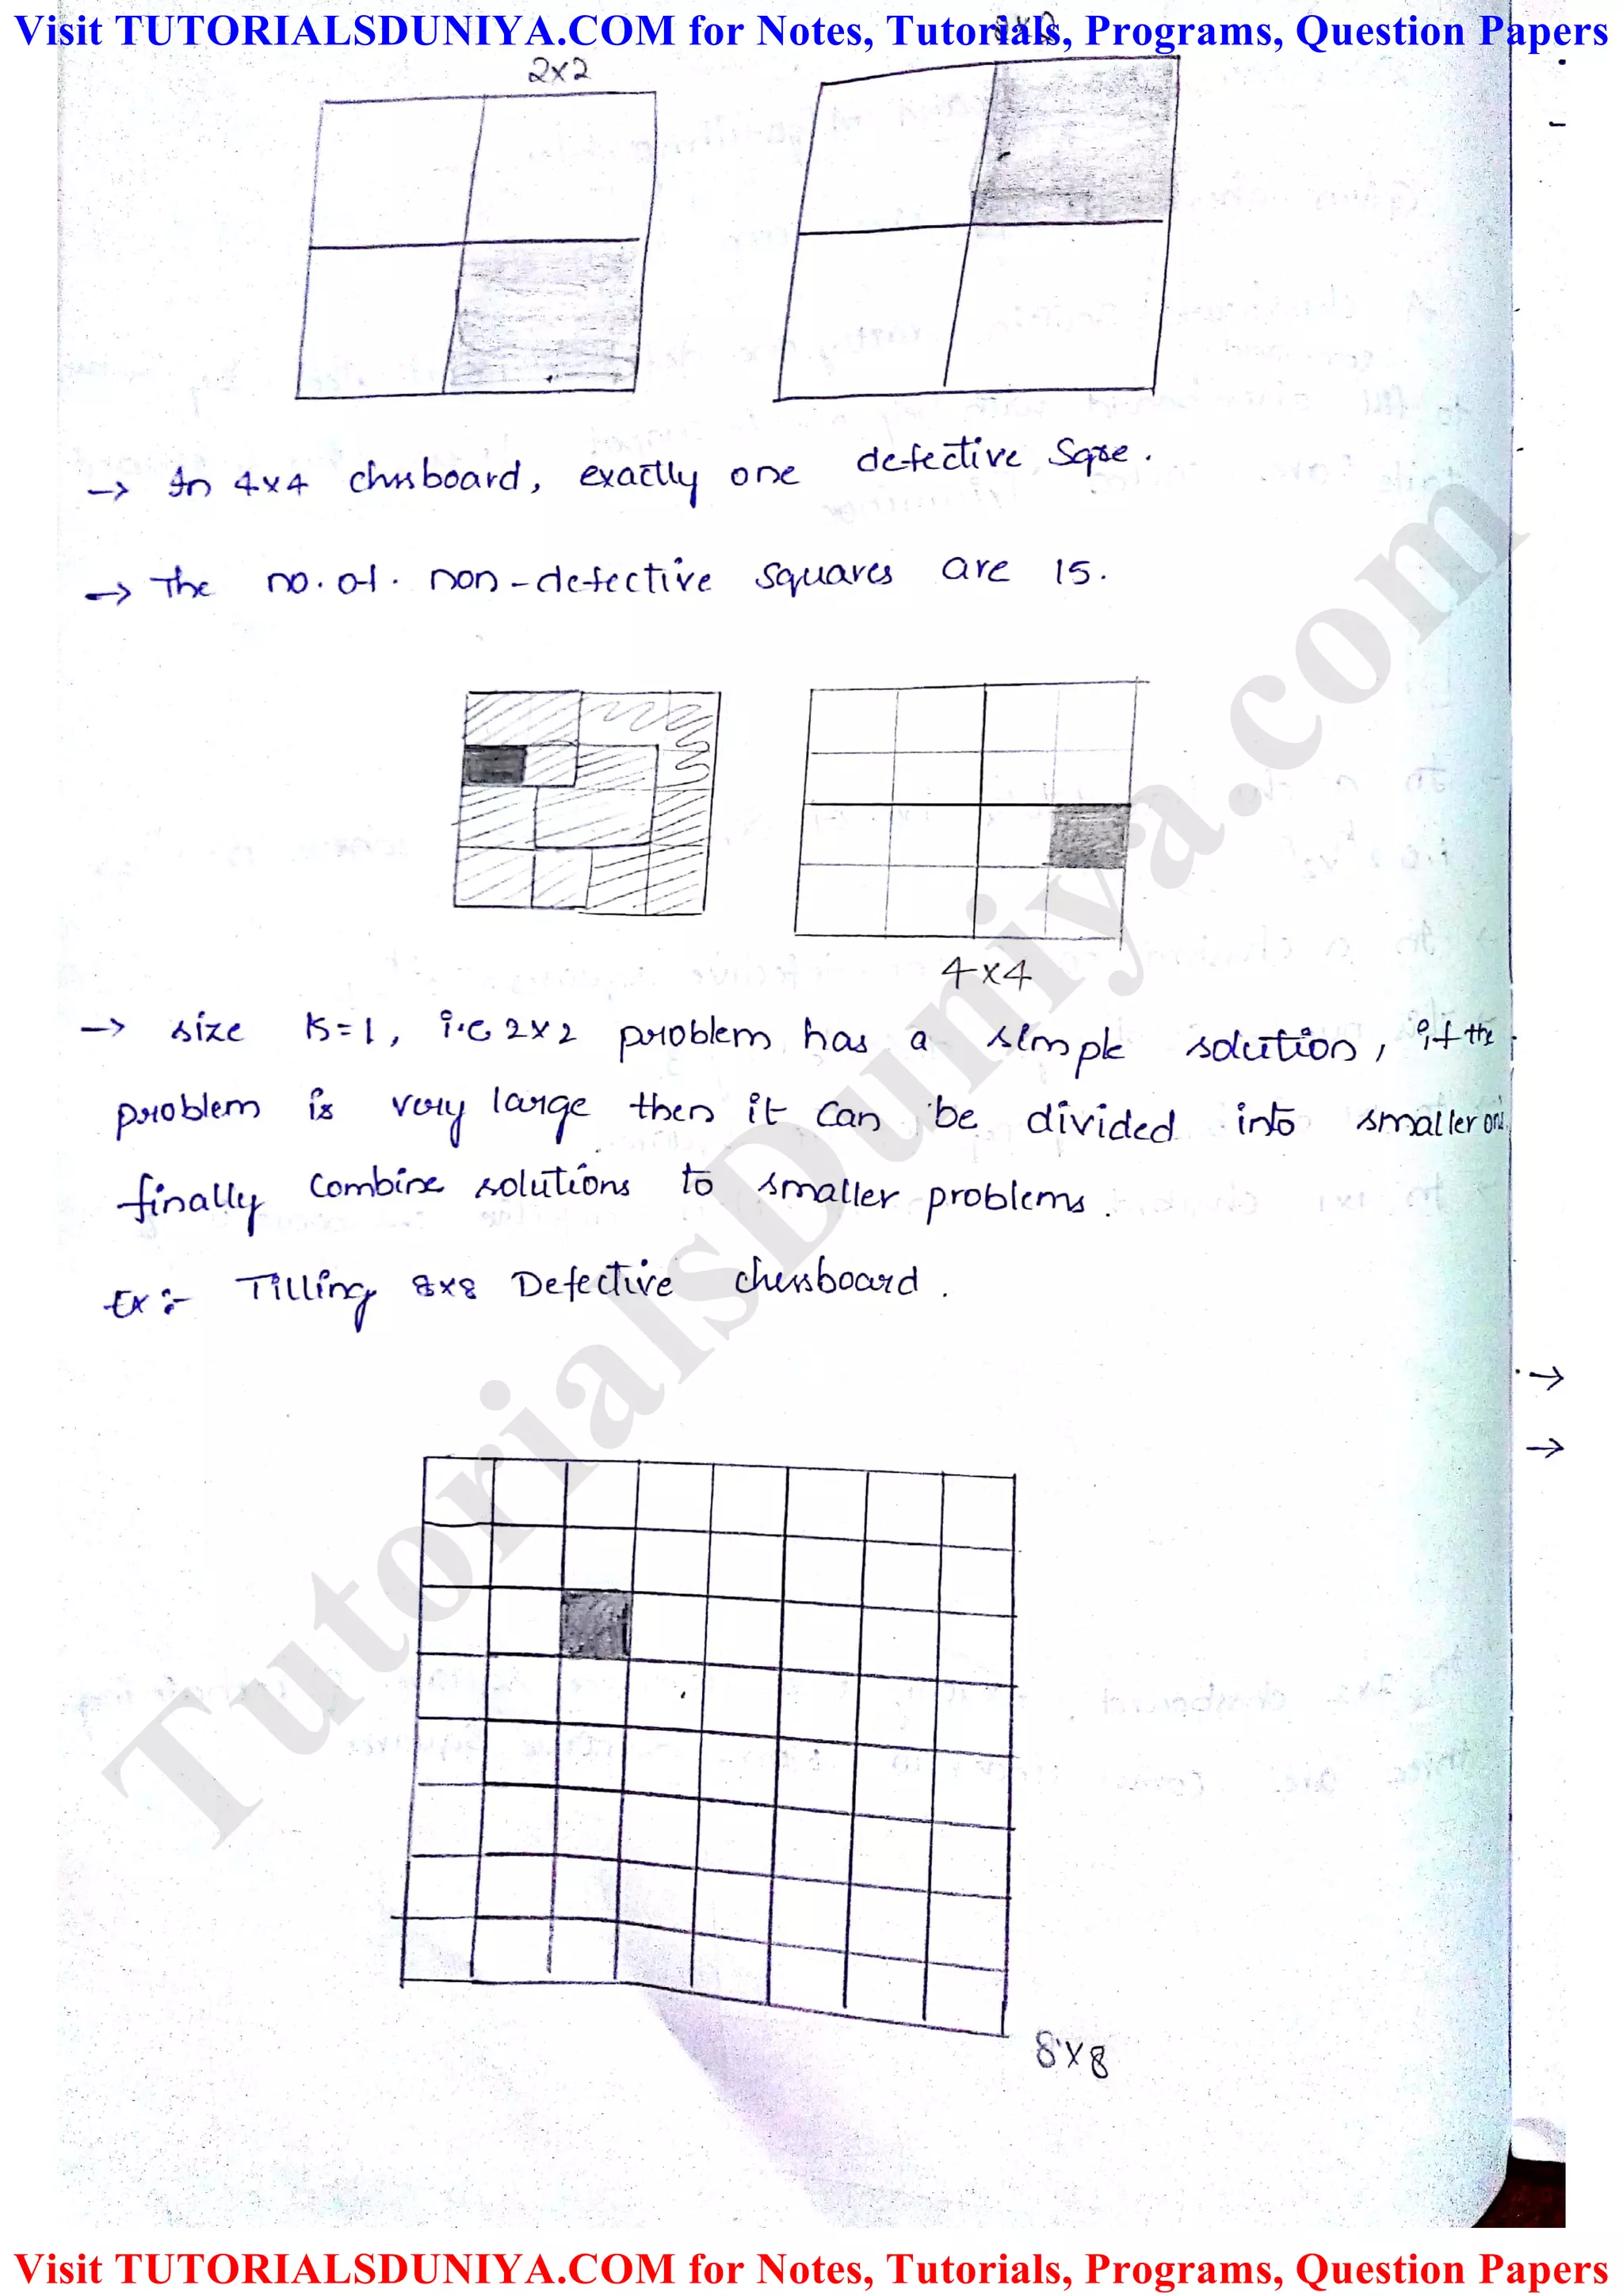 Visit TUTORIALSDUNIYA.COM for Notes, Tutorials, Programs, Question Papers
2x2
→ In 4x4 chessboard, exactly one defective Sqre.
→ The no. of. non-defective squares are 15.
4x4
→ size K=1, i.e 2x2 problem has a simple solution, if the
problem is very large then it can be divided into smaller
finally combine solutions to smaller problems.
Ex :- Tilling 8x8 Defective chessboard.
→
→
8x8
TutorialsDuniya.com
Visit TUTORIALSDUNIYA.COM for Notes, Tutorials, Programs, Question Papers